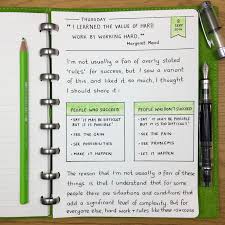 THURSDAY
" I LEARNED THE VALUE OF HARD
WORK BY WORKING HARD. "
Margaret Mead
I'm not usually a fan of overly stated
'rules' for success, but I saw a variant
of this, and liked it so much, I thought
I should share it:
PEOPLE WHO SUCCEED:
PEOPLE WHO DON'T SUCCEED
- SAY "IT MAY BE DIFFICULT
BUT IT IS POSSIBLE"
- SAY "IT MAY BE POSSIBLE
BUT IT IS TOO DIFFICULT"
- SEE THE GAIN
- SEE THE PAIN
- SEE POSSIBILITIES
- SEE PROBLEMS
- MAKE IT HAPPEN
- LET IT HAPPEN
The reason that I'm not usually a fan of these
things is that I understand that for some
people there are situations and conditions that
add a significant level of complexity. But for
everyone else, hard work + rules like these =